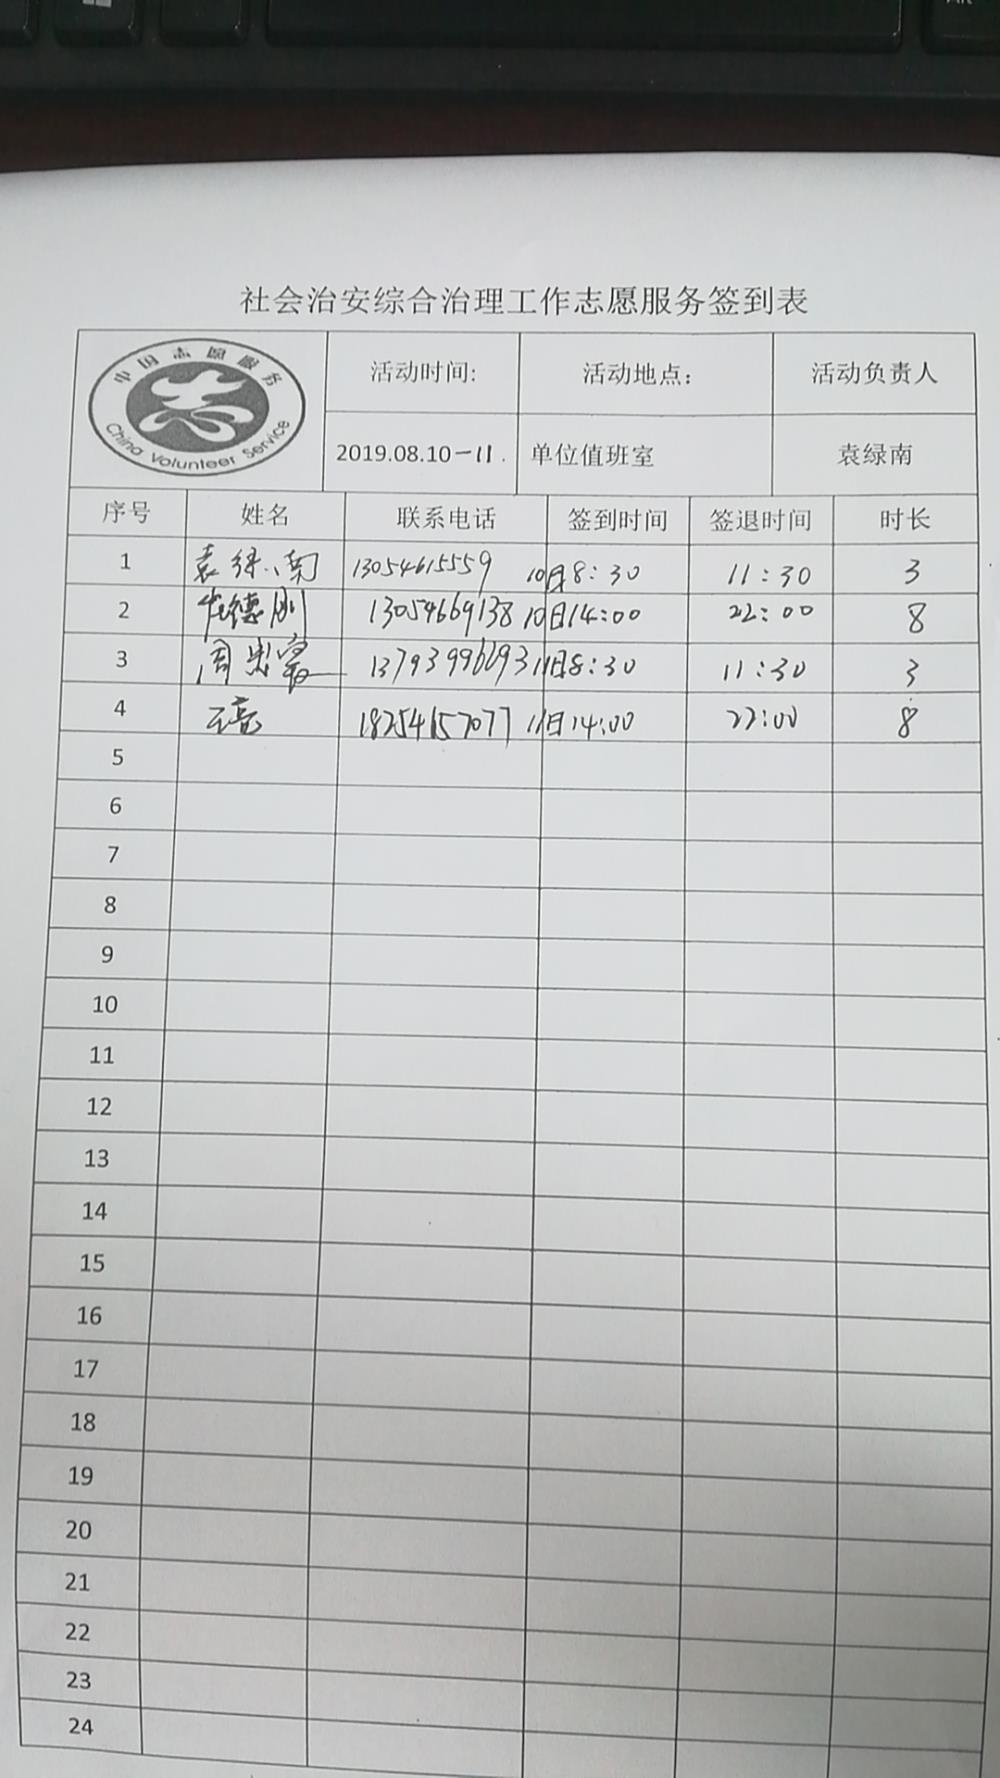 社会治安综合治理工作志愿服务签到表
中国志愿服务
China Volunteer Service
活动时间: 活动地点: 活动负责人
2019.08.10-11. 单位值班室 袁绿南
序号 姓名 联系电话 签到时间 签退时间 时长
1 袁绿南 13054615559 10日8:30 11:30 3
2 13054669138 10日14:00 22:00 8
3 周 13793996293 11日8:30 11:30 3
4 18254157077 11日14:00 22:00 8
5
6
7
8
9
10
11
12
13
14
15
16
17
18
19
20
21
22
23
24